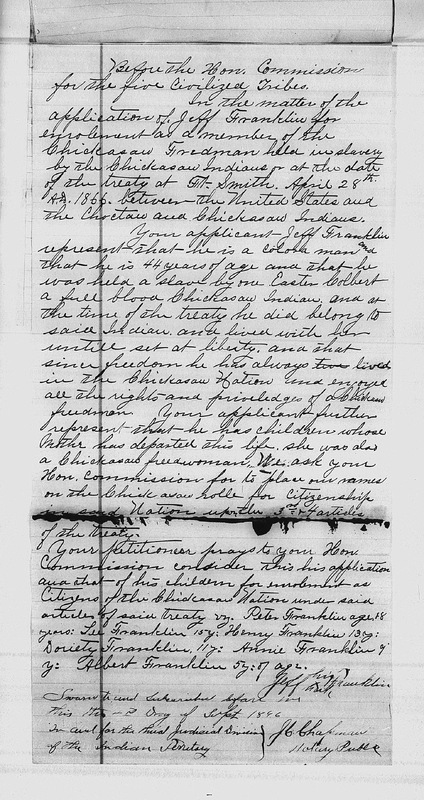 Before the Hon. Commission
for the five Civilized Tribes.
In the matter of the
application of Jeff Franklin for
enrolement as a member of the
Chickasaw Fredman held in slavery
by the Chickasaw Indians or at the date
of the treaty at Ft. Smith. April 28th
AD. 1866. between the United States and
the Choctaw and Chickasaw Indians.
Your applicant Jeff Franklin
represent that he is a colord man and
that he is 44 years of age and that he
was held a slave by one Easter Colbert
a full blood Chickasaw Indian, and at
the time of the treaty he did belong to
said Indian, and lived with her
untill set at liberty. and that
since freedom he has always lived
in the Chickasaw Nation and enjoyed
all the rights and priviledges of a Chickasaw
freedman Your applicant further
represent that he has children whose
Mother has departed this life. she was also
a Chickasaw freedwoman. We ask your
Hon. Commission for to place our names
on the Chickasaw rolls for Citizenship
in said Nation under 3rd & 4 articles
of the treaty.
Your petitioner prays to your Hon.
Commission consider this his application
and that of his children for enrolment as
Citizens of the Chickasaw Nation under said
articles of said treaty vz. Peter Franklin age 18
years: Lee Franklin 15y: Henry Franklin 13y:
Franklin, 11y: Annie Franklin 9
y: Albert Franklin 5y: of age.
Jeff his mark Franklin
Sworn to and subscribed before me
this the 2 Day of Sept 1896
In and for the third Judicial Division
of the Indian Teretory
J C Chapman
Notary Public